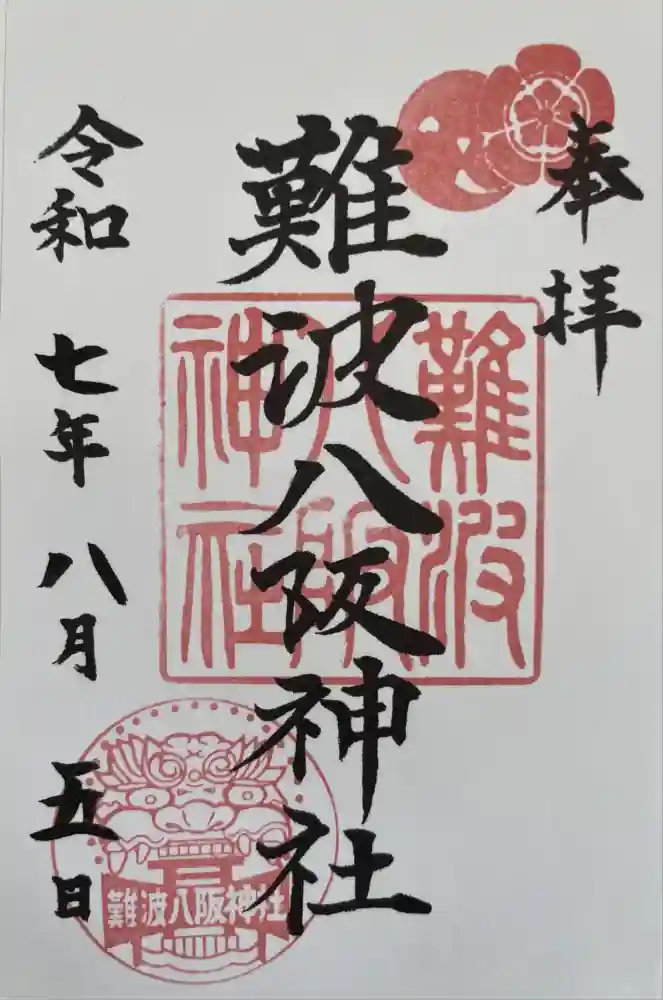 奉拝
難波八阪神社
難波
八阪
神社
令和七年八月五日
難波八阪神社